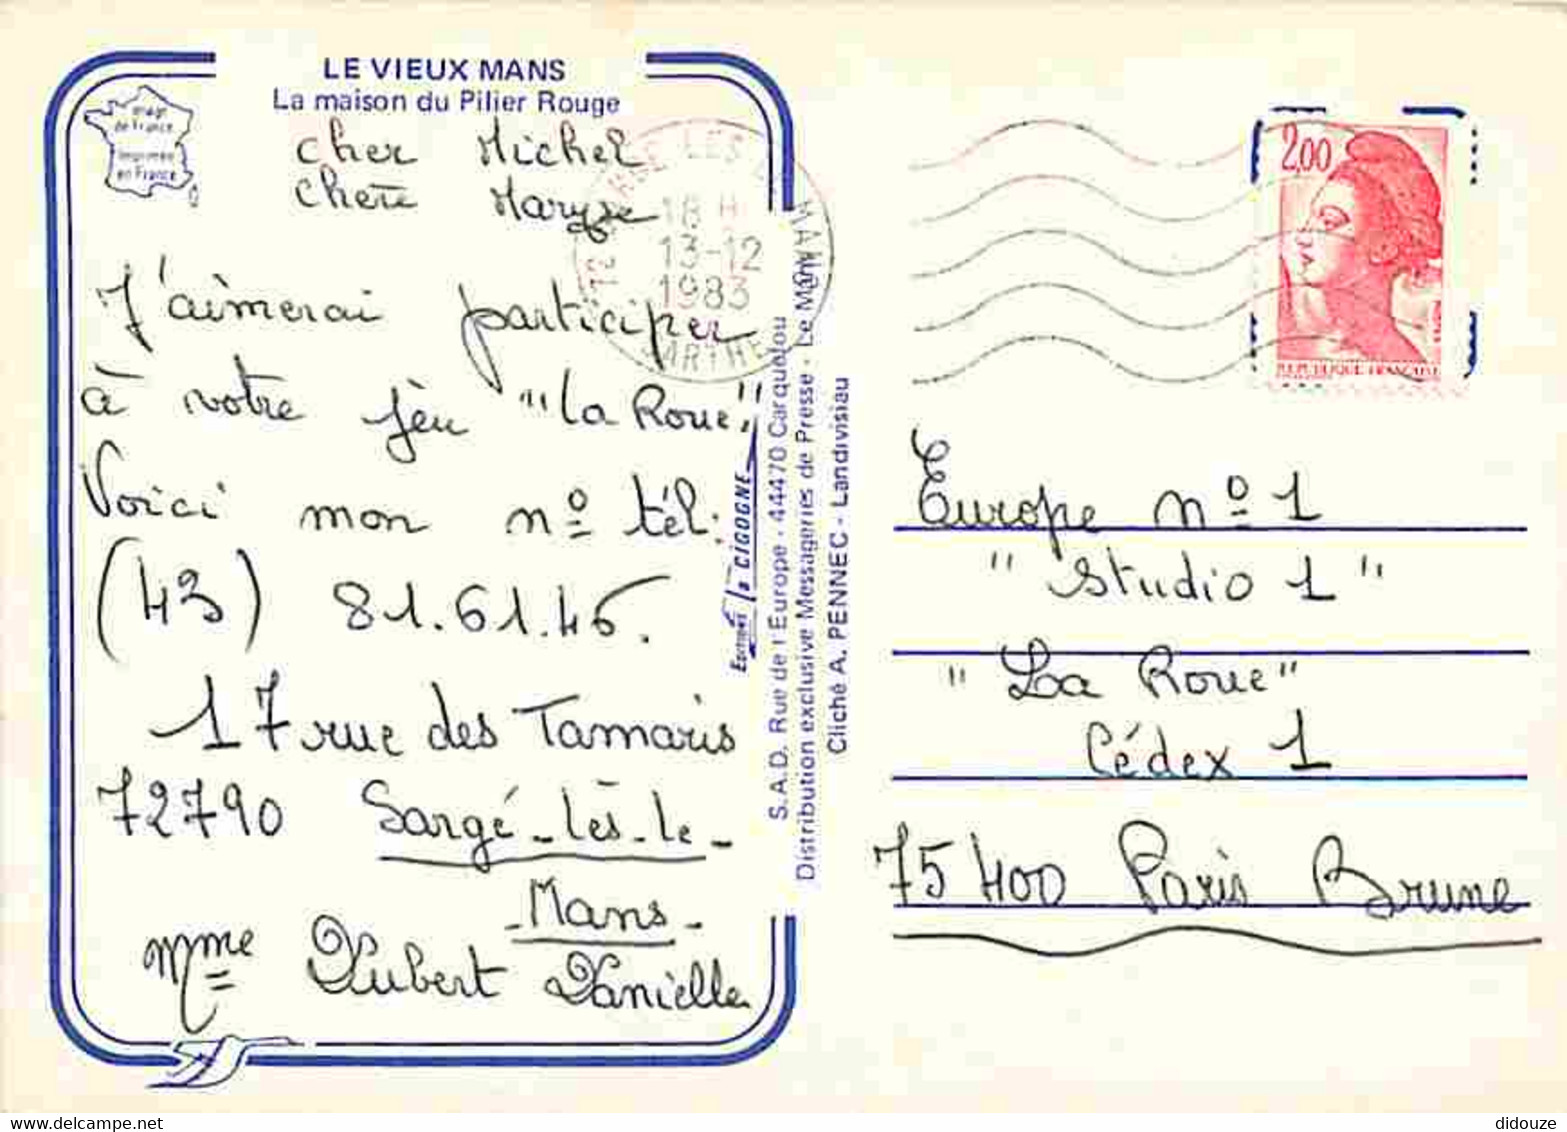 LE VIEUX MANS
La maison du Pilier Rouge
Image
de France
Imprimée
en France
cher Michel
chère Maryse
J'aimerai participer
à votre jeu "la Roue".
Voici mon nº tél:
(43) 81.61.46.
17 rue des Tamaris
72790 Sargé-lès-le-
-Mans-
Mme Dubert Danielle
18 H
13-12
1983
SARTHE
EDITIONS la CIGOGNE
S.A.D. Rue de l'Europe - 44470 Carquefou
Distribution exclusive Messageries de Presse - Le Mans
Cliché A. PENNEC - Landivisiau
2,00
REPUBLIQUE FRANÇAISE
Europe nº 1
"Studio 1"
"La Roue"
Cédex 1
75400 Paris Brune
didouze